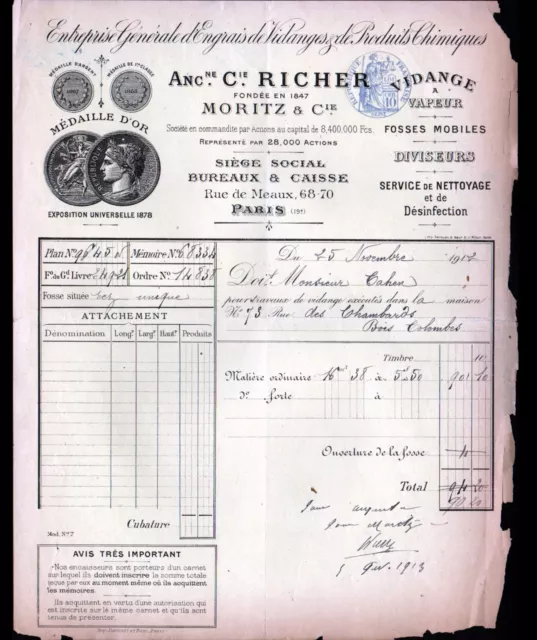 Entreprise Générale d'Engrais de Vidanges & de Produits Chimiques
MÉDAILLE D'ARGENT
MÉDAILLE DE 1re CLASSE
MÉDAILLE D'OR
EXPOSITION UNIVERSELLE 1878
ANCNE CIE RICHER
FONDÉE EN 1847
MORITZ & CIE
Société en commandite par Actions au capital de 8,400,000 Fcs.
REPRÉSENTÉ PAR 28,000 ACTIONS
SIÈGE SOCIAL
BUREAUX & CAISSE
Rue de Meaux, 68-70
PARIS (19e)
10
VIDANGE
A
VAPEUR
FOSSES MOBILES
DIVISEURS
SERVICE DE NETTOYAGE
et de
Désinfection
Plan No 96458 Mémoire No 68334
Fo du Gd Livre 24921 Ordre No 14838
Fosse située unique
ATTACHEMENT
Dénomination Longr Largr Hautr Produits
Cubature
Mod. No 7
Du 25 Novembre 1912
Doit Monsieur Cahen
pour travaux de vidange exécutés dans la maison
No 73 Rue des Chambards
Bois Colombes
Timbre 10
Matière ordinaire 16 38 à 5.50 90 10
do forte à
Ouverture de la fosse 4
Total 94 20
90 20
Pour acquit
1913
AVIS TRÈS IMPORTANT
Nos encaisseurs sont porteurs d'un carnet
sur lequel ils doivent inscrire la somme totale
reçue par eux au moment même où ils acquittent
les mémoires.
Ils acquittent en vertu d'une autorisation qui
est inscrite sur le même carnet et qu'ils sont
tenus de présenter.